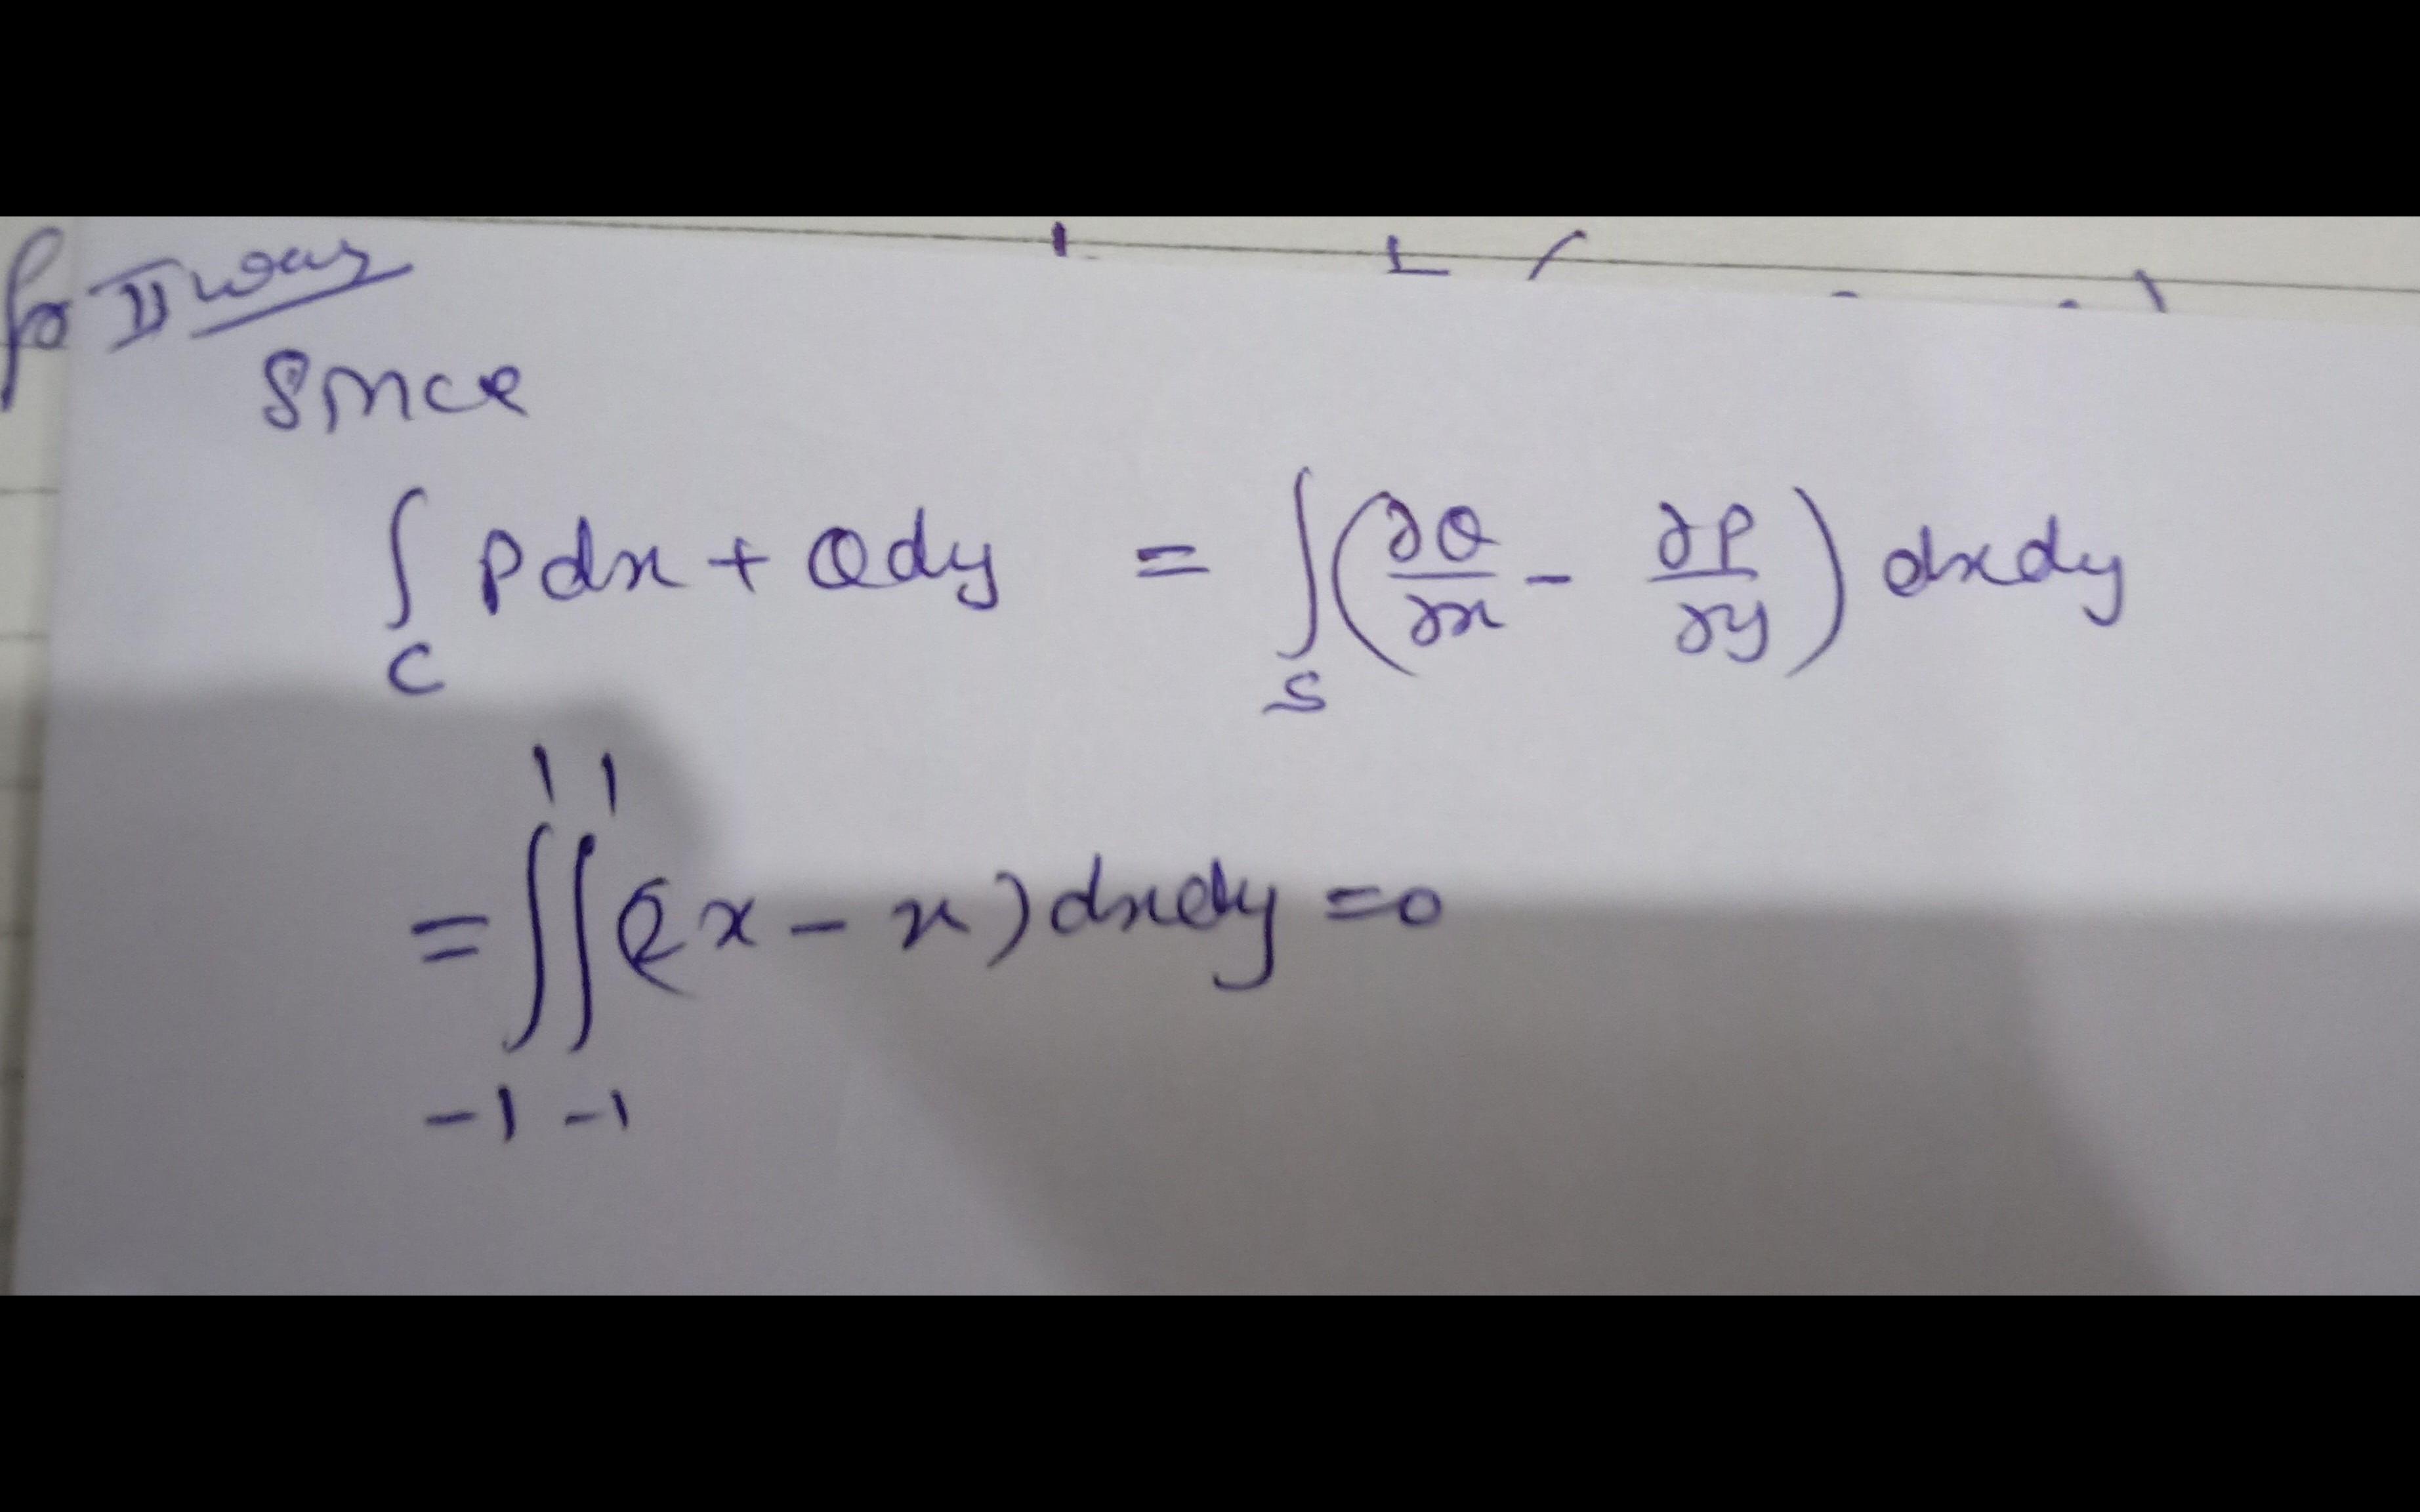 for II way
Since
∫_C P dx + Q dy = ∫_S (∂Q/∂x - ∂P/∂y) dxdy
= ∫_{-1}^{1} ∫_{-1}^{1} (2x - x) dxdy = 0